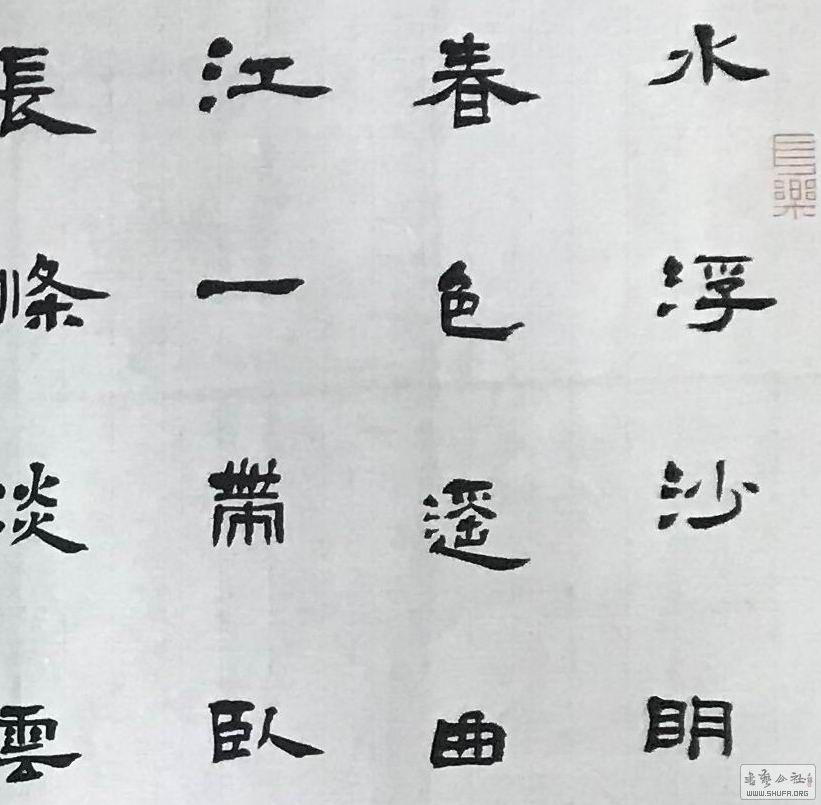 水浮沙明
春色遥曲
江一帶臥
長條淡雲
書藝公社
WWW.SHUFA.ORG